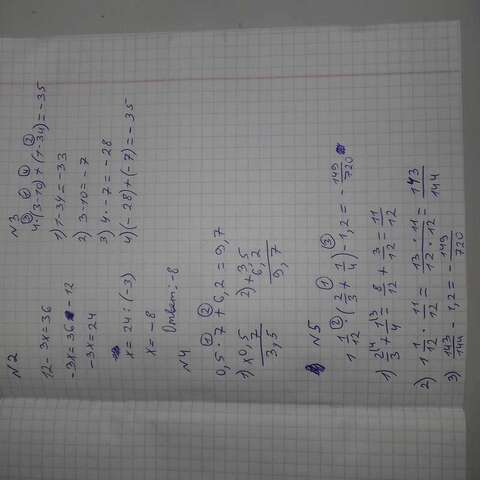 №2
12 - 3x = 36
-3x = 36 - 12
-3x = 24
x = 24 : (-3)
x = -8
Ответ: -8
№3
4·(3-10)+(1-34)=-35
1) 1-34=-33
2) 3-10=-7
3) 4·-7=-28
4) (-28)+(-7)=-35
№4
0,5 · 7 + 6,2 = 9,7
1) ×0,5
7
3,5
2) +3,5
6,2
9,7
№5
1 1/12 · (2/3 + 1/4) - 1,2 = - 149/720
1) 2/3 (4 + 1/4 (3 = 8/12 + 3/12 = 11/12
2) 1 1/12 · 11/12 = 13 · 11 / 12 · 12 = 143/144
3) 143/144 - 1,2 = - 149/720